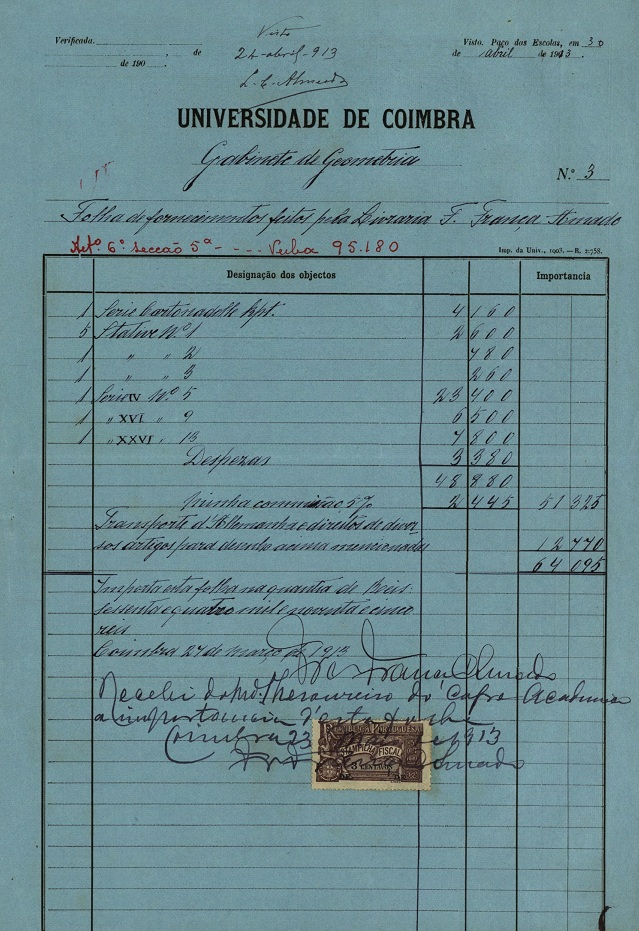 Verificada
, de
de 190
Visto
24-abril-913
L. C. Almeida
Visto. Paço das Escolas, em 30
de abril de 1913.
UNIVERSIDADE DE COIMBRA
Gabinete de Geometria
N.º 3
Folha de fornecimentos feitos pela Livraria F. França Amado
Artº. 6º secção 5ª - - - - Verba 95.180
Imp. da Univ., 1903.—R. 2:758.
Designação dos objectos Importancia
1 Serie Cartonadelle Kpt. 4 160
5 Stative Nº 1 2 600
1 " " 2 480
1 " " 3 260
1 Serie IV Nº 5 23 400
1 " XVI " 9 6 500
1 " XXVI " 13 7 800
Despezas 3 380
48 880
Minha commissão 5% 2 445 51 325
Transporte d'Allemanha e direitos de diver-
sos artigos para desenho acima mencionados 12 770
64 095
Importa esta folha na quantia de Reis:
Sessenta e quatro mil e noventa e cinco
reis
Coimbra 27 de março de 1913
França Amado
Recebi do Snr. Thesoureiro do Cofre Academico
a importancia d'esta folha
Coimbra 23 1913
REPUBLICA PORTUGUESA
ESTAMPILHA FISCAL
3 CENTAVOS
França Amado